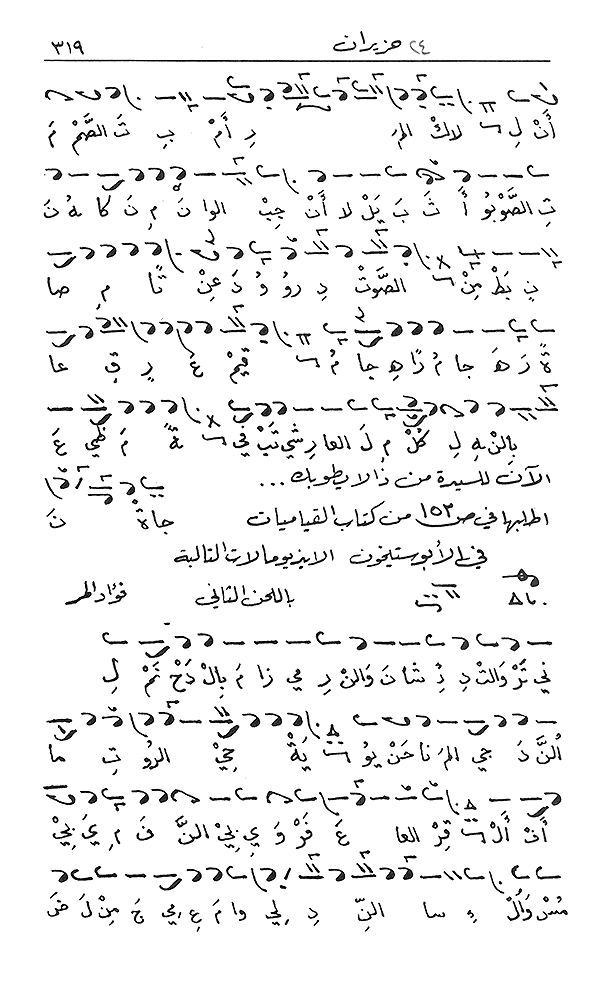 ٢٤ حزيران ٣١٩
أَنْ لِ لاكْ المَ رِ أَمْ بِ تَ الصَّمْ مَ
تِ الصَّوْبُو أَ ثَ بَ يَلْ لا أَنْ جِبْ الوا نْ مِ نَ كا هُ نَ
نِ بَطْ مِنْ الصَّوْتْ دِ رو وُ دَ عِنْ تًا مِ صا
ةً رَ هَ جا مُ زًا هِ جا مُ قيمْ عَ رِ قِ عا
بِالنْ هِ لِ كُلْ مِ لَ العا رِ شي تَبْ في ةً مَ ظي عَ
الآن للسيدة من ذا لا يطوبك ...
اطلبها في ص ١٥٣ من كتاب القياميات جاةْ نَ
في الأبوستيخون الايذيومالات التالية
باللحن الثاني فؤاد المر
في تَرْ وَالتْ دِ ذِ شا نَ وَالنْ رِ مي زا مَ بِالْ دَحْ نَمْ لِ
النَّ دَ جي المَ نا حَنْ يو يَةْ حِيْ الرو تِ ما
أَنْ أَلْ قِرْ العا عَ فَرْ وَ يِ بِيْ النَّ فَ مِ يَ بِيْ
مُسْ وَالْ ءِ سا النِّ دِ لي وا مَ عِ مي جَ مِنْ لَ ضَ